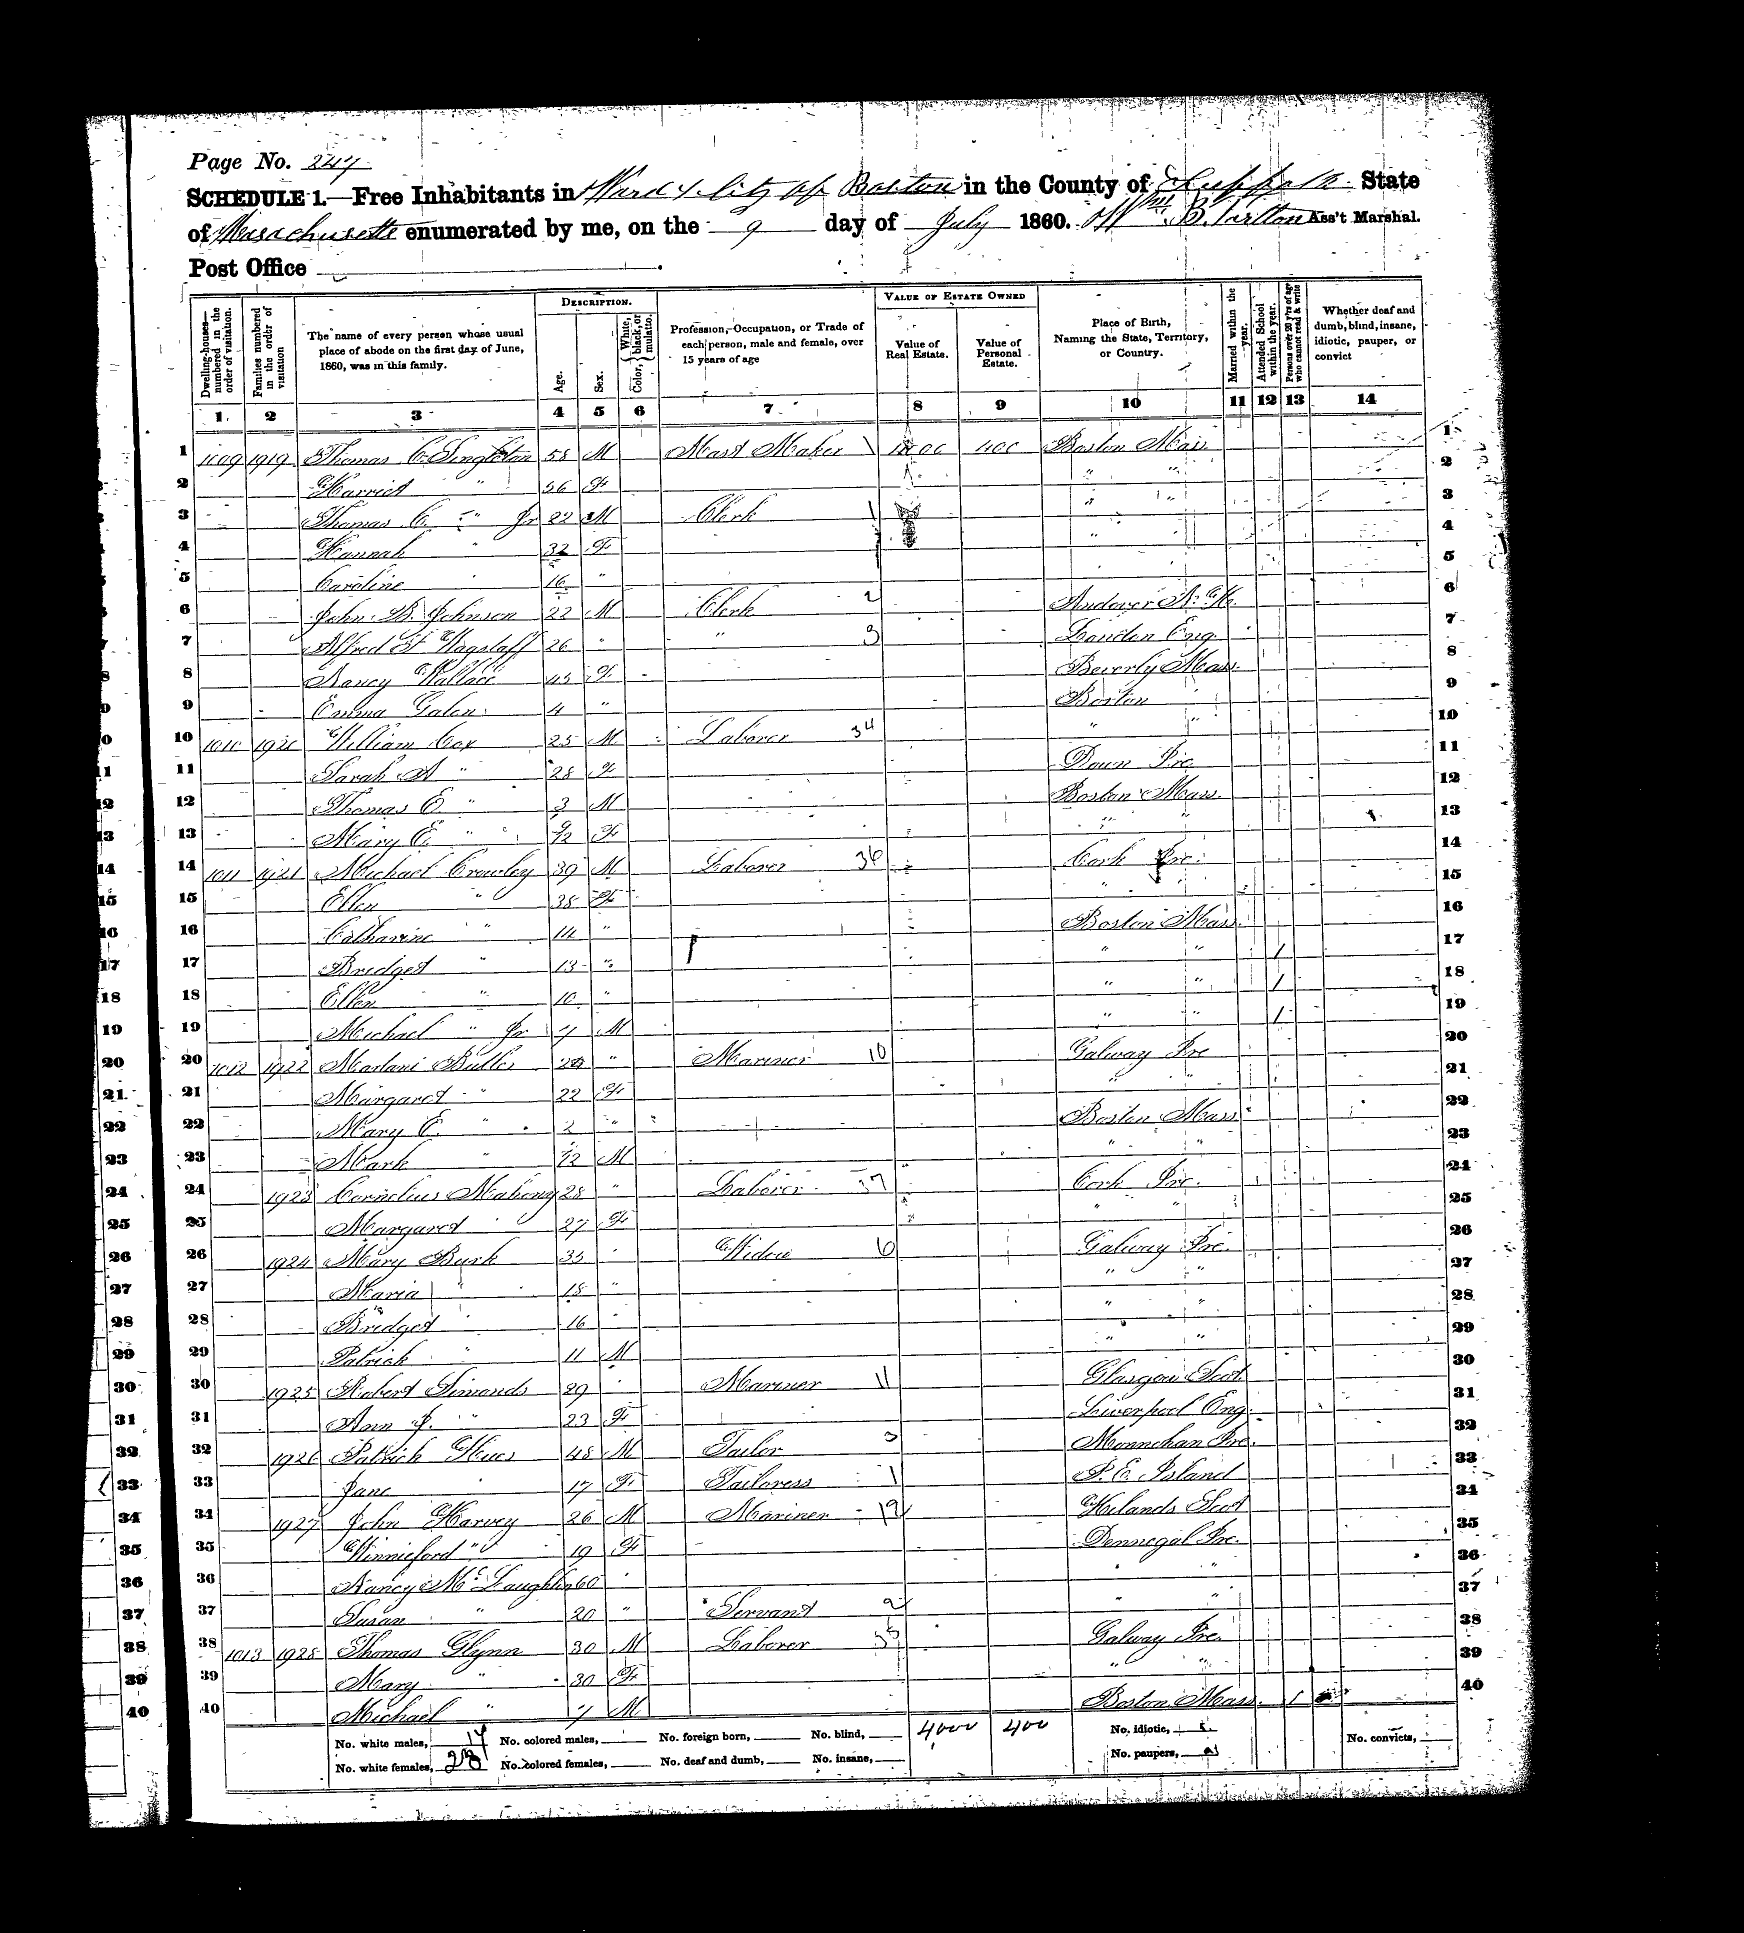 Page No. 247
SCHEDULE 1.—Free Inhabitants in Ward City of Boston in the County of Suffolk State
of Massachusetts enumerated by me, on the 9 day of July 1860. Wm. B. Tarlton Ass't Marshal.
Post Office
Dwelling-houses—numbered in the order of visitation.
Families numbered in the order of visitation
The name of every person whose usual place of abode on the first day of June, 1860, was in this family.
DESCRIPTION.
Age.
Sex.
Color, { White, black, or mulatto.
Profession, Occupation, or Trade of each person, male and female, over 15 years of age
VALUE OF ESTATE OWNED
Value of Real Estate.
Value of Personal Estate.
Place of Birth, Naming the State, Territory, or Country.
Married within the year.
Attended School within the year.
Persons over 20 y'rs of age who cannot read & write
Whether deaf and dumb, blind, insane, idiotic, pauper, or convict
1 2 3 4 5 6 7 8 9 10 11 12 13 14
1 1009 1919 Thomas C. Singleton 58 M Mast Maker 1 400 Boston Mass 1
2 Harriet " 56 F " " 2
3 Thomas C. " Jr 22 M Clerk 1 " " 3
4 Hannah " 32 F " " 4
5 Caroline " 16 " 5
6 John B. Johnson 22 M Clerk 2 Andover N. H. 6
7 Alfred Wagstaff 26 " " 3 London Eng 7
8 Nancy Wallace 45 F Beverly Mass. 8
9 Emma Galen 4 " Boston 9
10 1010 1920 William Cox 25 M Laborer 34 " " 10
11 Sarah A " 28 F Down Ire 11
12 Thomas E. " 3 M Boston Mass 12
13 Mary E. " 9/12 F " " 13
14 1011 1921 Michael Crowley 39 M Laborer 36 Cork Ire. 14
15 Ellen " 38 F " 15
16 Catharine " 14 " Boston Mass 16
17 Bridget " 13 " " " 1 17
18 Ellen " 10 " " " 1 18
19 Michael " Jr 7 M " " 1 19
20 1012 1922 Butler 29 " Mariner 10 Galway Ire 20
21 Margaret " 22 F " " 21
22 Mary E. " 2 " Boston Mass 22
23 Mark " /12 M " " 23
24 1923 Cornelius Mahony 28 " Laborer 37 Cork Ire. 24
25 Margaret " 27 F " " 25
26 1924 Mary Burk 35 " Widow 6 Galway Ire. 26
27 Maria " 18 " " " 27
28 Bridget " 16 " " " 28
29 Patrick " 11 M " " 29
30 1925 Robert Simonds 29 " Mariner 11 Glasgow Scot 30
31 Ann J. " 23 F Liverpool Eng 31
32 1926 Patrick Hues 48 M Tailor 3 Monnehan Ire. 32
33 Jane " 17 F Tailoress 1 P. E. Island 33
34 1927 John Harvey 26 M Mariner 12 Hilands Scot 34
35 Winnieford " 19 F Dennegal Ire. 35
36 Nancy McLaughlin 60 " " " 36
37 Susan " 20 " Servant 2 " " 37
38 1013 1928 Thomas Glynn 30 M Laborer Galway Ire. 38
39 Mary " 30 F " " 39
40 Michael " 7 M Boston Mass. 1 40
No. white males, 17 No. colored males, No. foreign born, No. blind, 4000 400 No. idiotic, No. convicts,
No. white females, 23 No. colored females, No. deaf and dumb, No. insane, No. paupers,